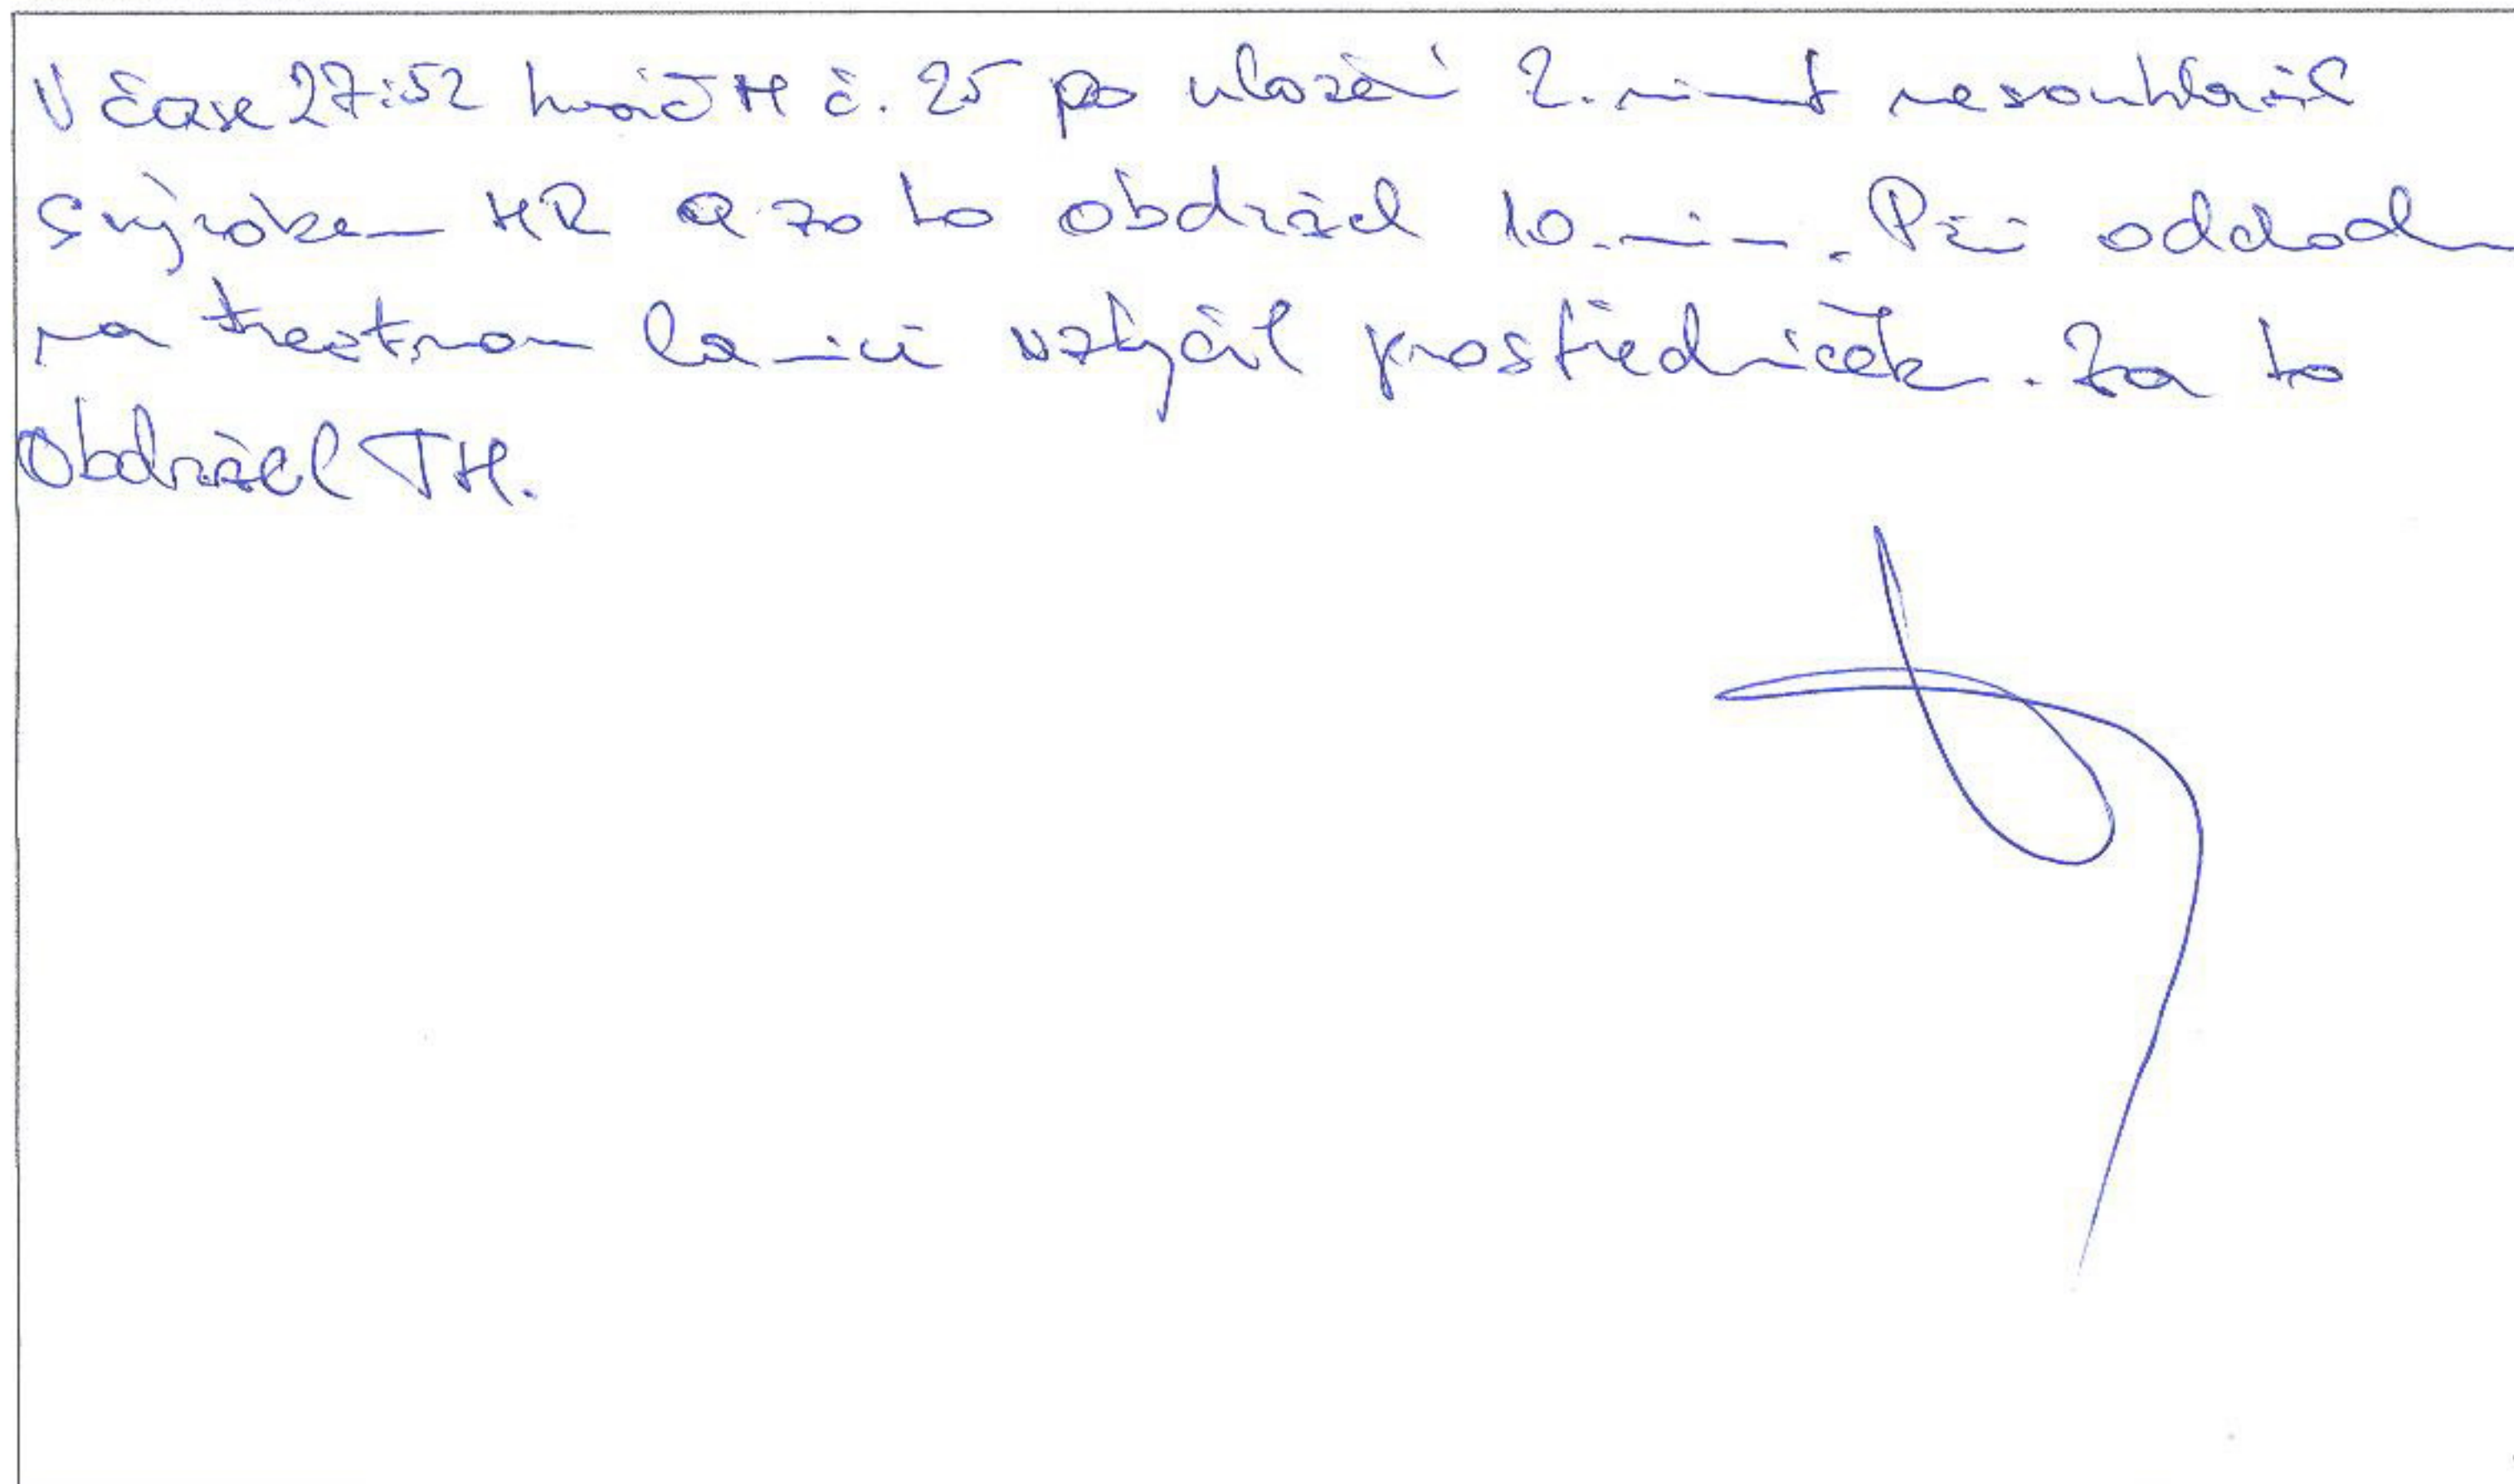 V čase 27:52 hráč H č. 25 po uložení 2. minut nesouhlasil
s výrokem HR a za to obdržel 10. min. Při odchodu
na trestnou lavici vztyčil prostředníček. Za to
obdržel TH.